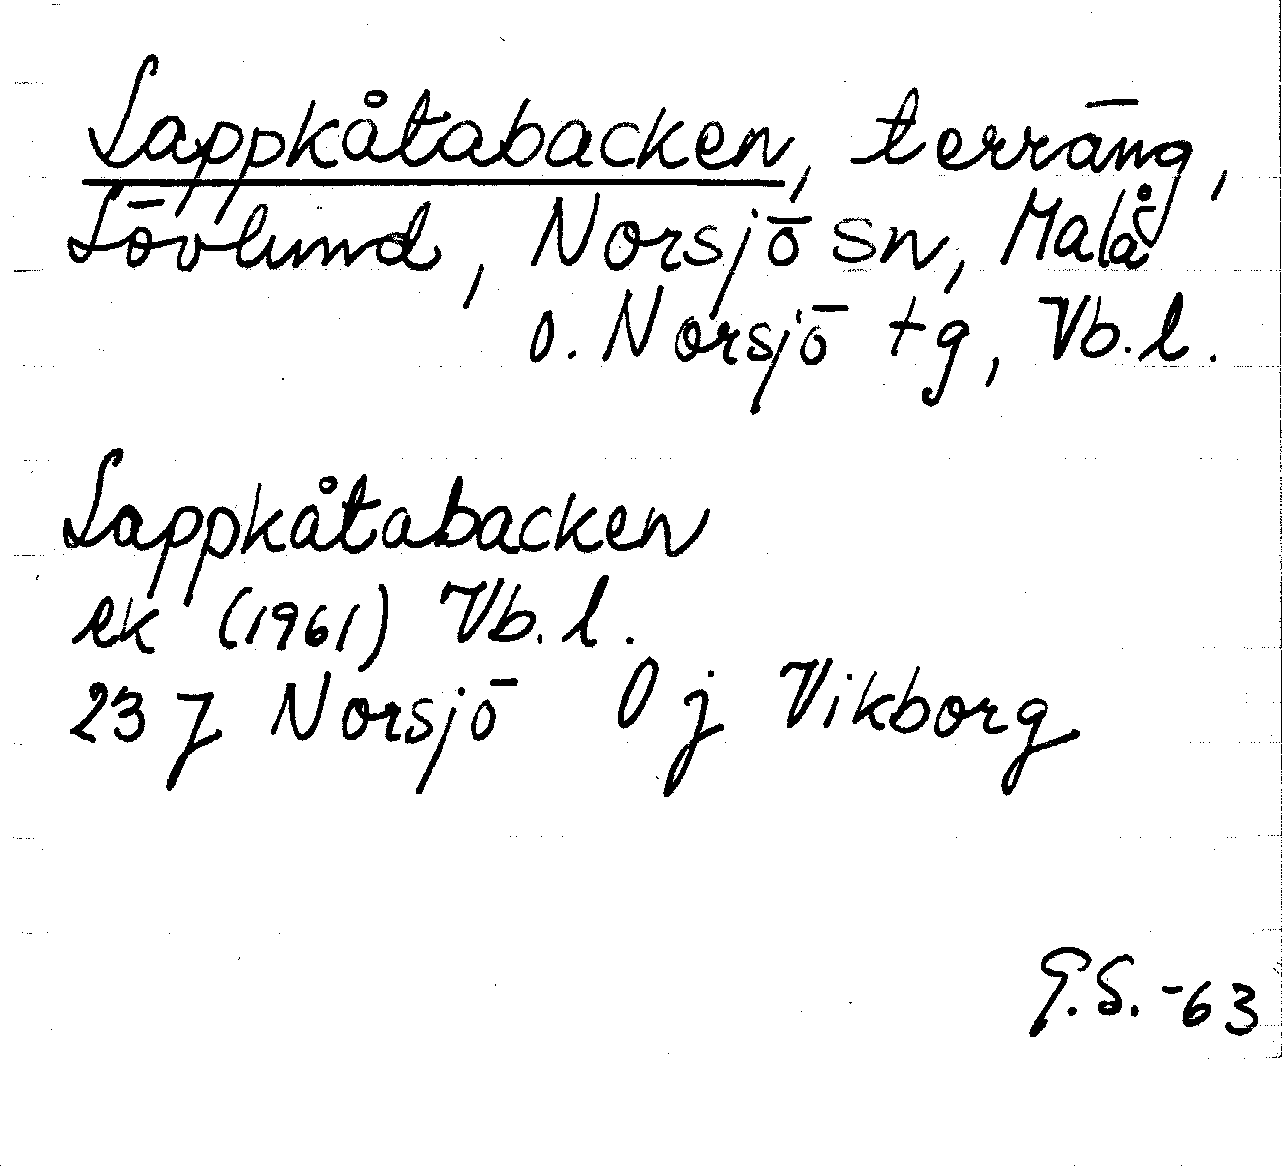 Lappkåtabacken, terräng,
Lövlund, Norsjö sn, Malå
o. Norsjö tg, Vb.l.
Lappkåtabacken
ek (1961) Vb.l.
23 J Norsjö 0 j Vikborg
G.S. -63